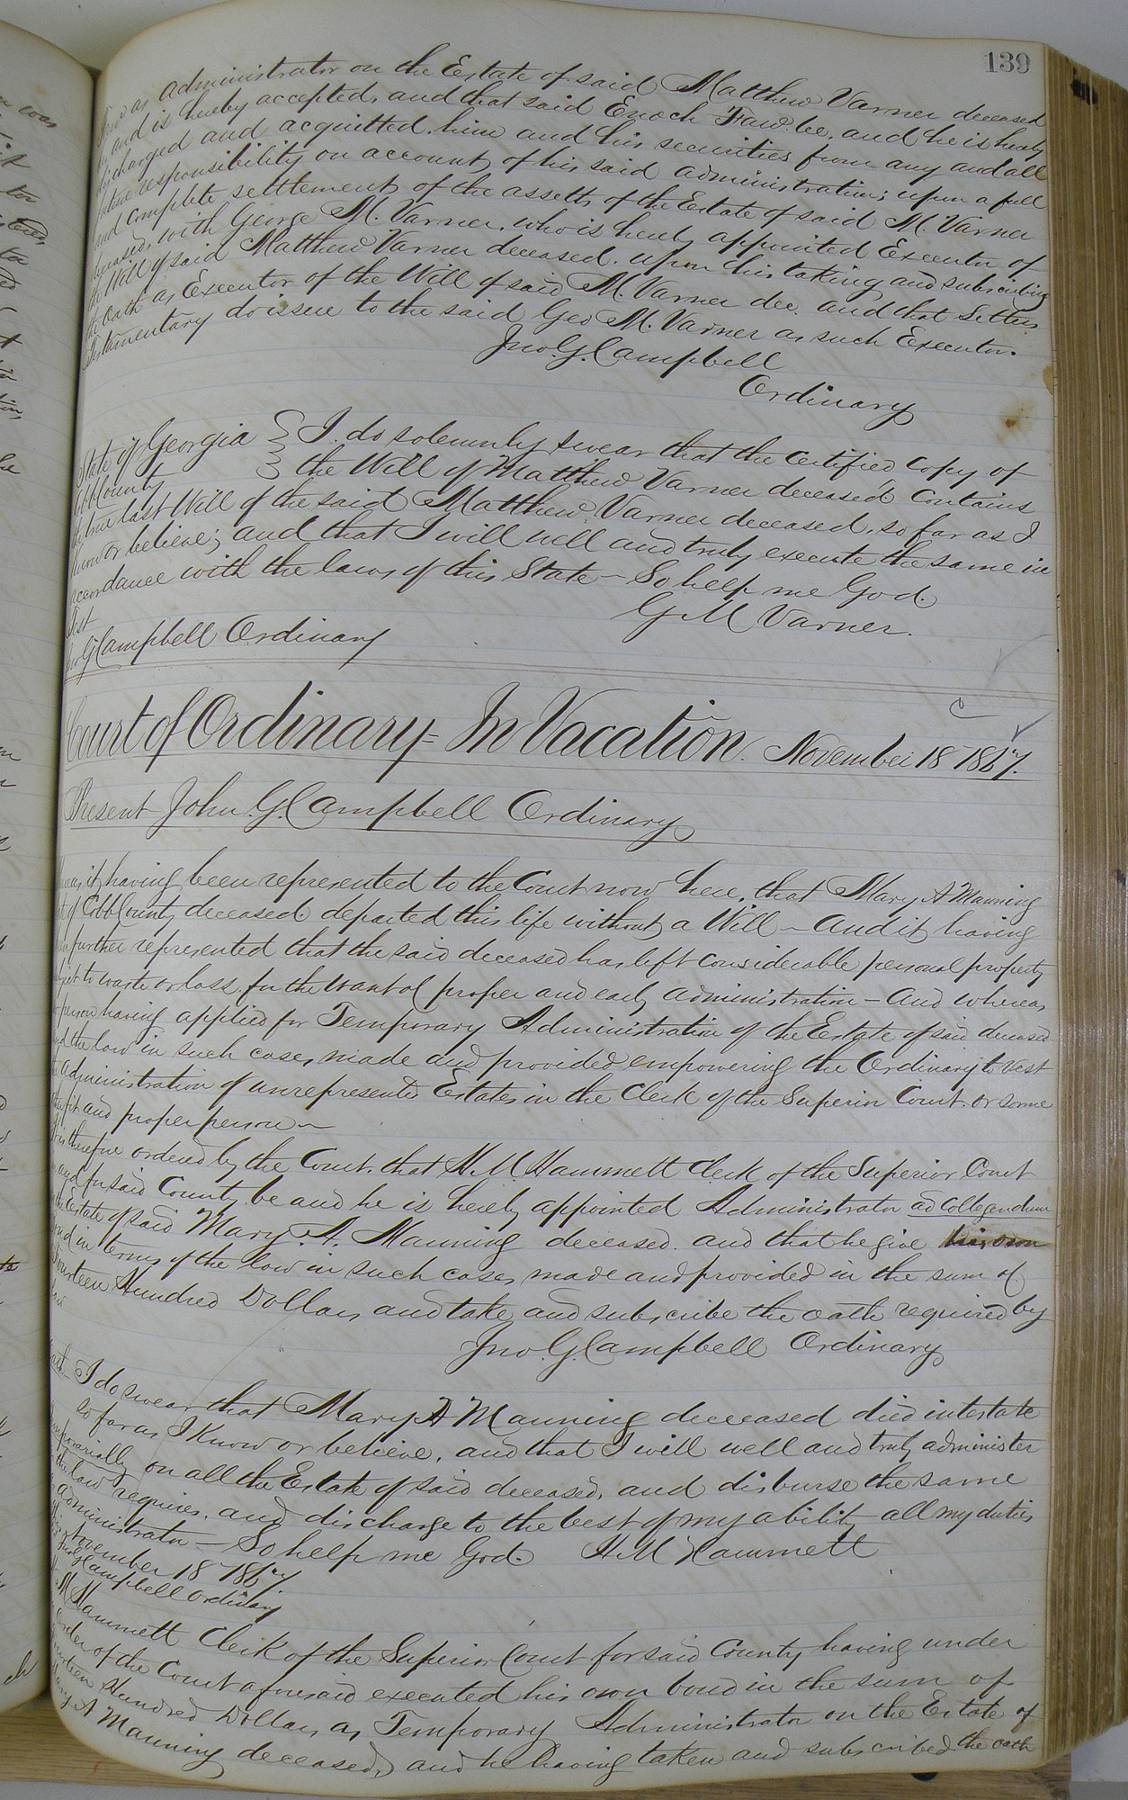 139
as administrator on the Estate of said Matthew Varner deceased
and is hereby accepted, and that said Enoch Faw be, and he is hereby
discharged and acquitted, him and his securities from any and all
future responsibility on account of his said administration; upon a full
and complete settlement of the assetts of the Estate of said M. Varner
deceased, with George M. Varner, who is hereby appointed Executor of
the Will of said Matthew Varner deceased. upon his taking and subscribing
the oath as Executor of the Will of said M. Varner dec. and that Letters
testamentary do issue to the said Geo M. Varner as such Executor.
Jno. G. Campbell
Ordinary
State of Georgia } I do solemnly swear that the certified copy of
Cobb County } the Will of Matthew Varner deceased, contains
the true last Will of the said Matthew Varner deceased, so far as I
know or believe; and that I will well and truly execute the same in
accordance with the laws of this State - So help me God.
Test G. M Varner.
Jno G Campbell Ordinary
Court of Ordinary = In Vacation. November 18 1867.
Present John G. Campbell Ordinary
it having been represented to the Court now here, that Mary A Manning
of Cobb County deceased departed this life without a Will - And it having
further represented that the said deceased has left considerable personal property
subject to waste or loss, for the want of proper and early administration - And whereas
no person having applied for Temporary Administration of the Estate of said deceased
and the law in such cases made and provided empowering the Ordinary to vest
the administration of unrepresented Estates in the Clerk of the Superior Court or some
other fit and proper person ~
It is therefore ordered by the Court, that H. M. Hammett Clerk of the Superior Court
in and for said County be and he is hereby appointed Administrator ad Collegendum
on the Estate of said Mary A. Manning deceased. and that he give his own
bond in terms of the law in such cases made and provided in the sum of
Fourteen Hundred Dollars and take and subscribe the oath required by
law
Jno. G. Campbell Ordinary
I do swear that Mary A Manning deceased died intestate
so far as I know or believe, and that I will well and truly administer
temporarially on all the Estate of said deceased, and disburse the same
as the law requires, and discharge to the best of my ability all my duties
as administrator - So help me God. H. M Hammett
November 18 1867
Jno G Campbell Ordinary
H. M Hammett Clerk of the Superior Court for said County having under
order of the Court aforesaid executed his own bond in the sum of
Fourteen Hundred Dollars as Temporary Administrator on the Estate of
Mary A Manning deceased, and he having taken and subscribed the oath